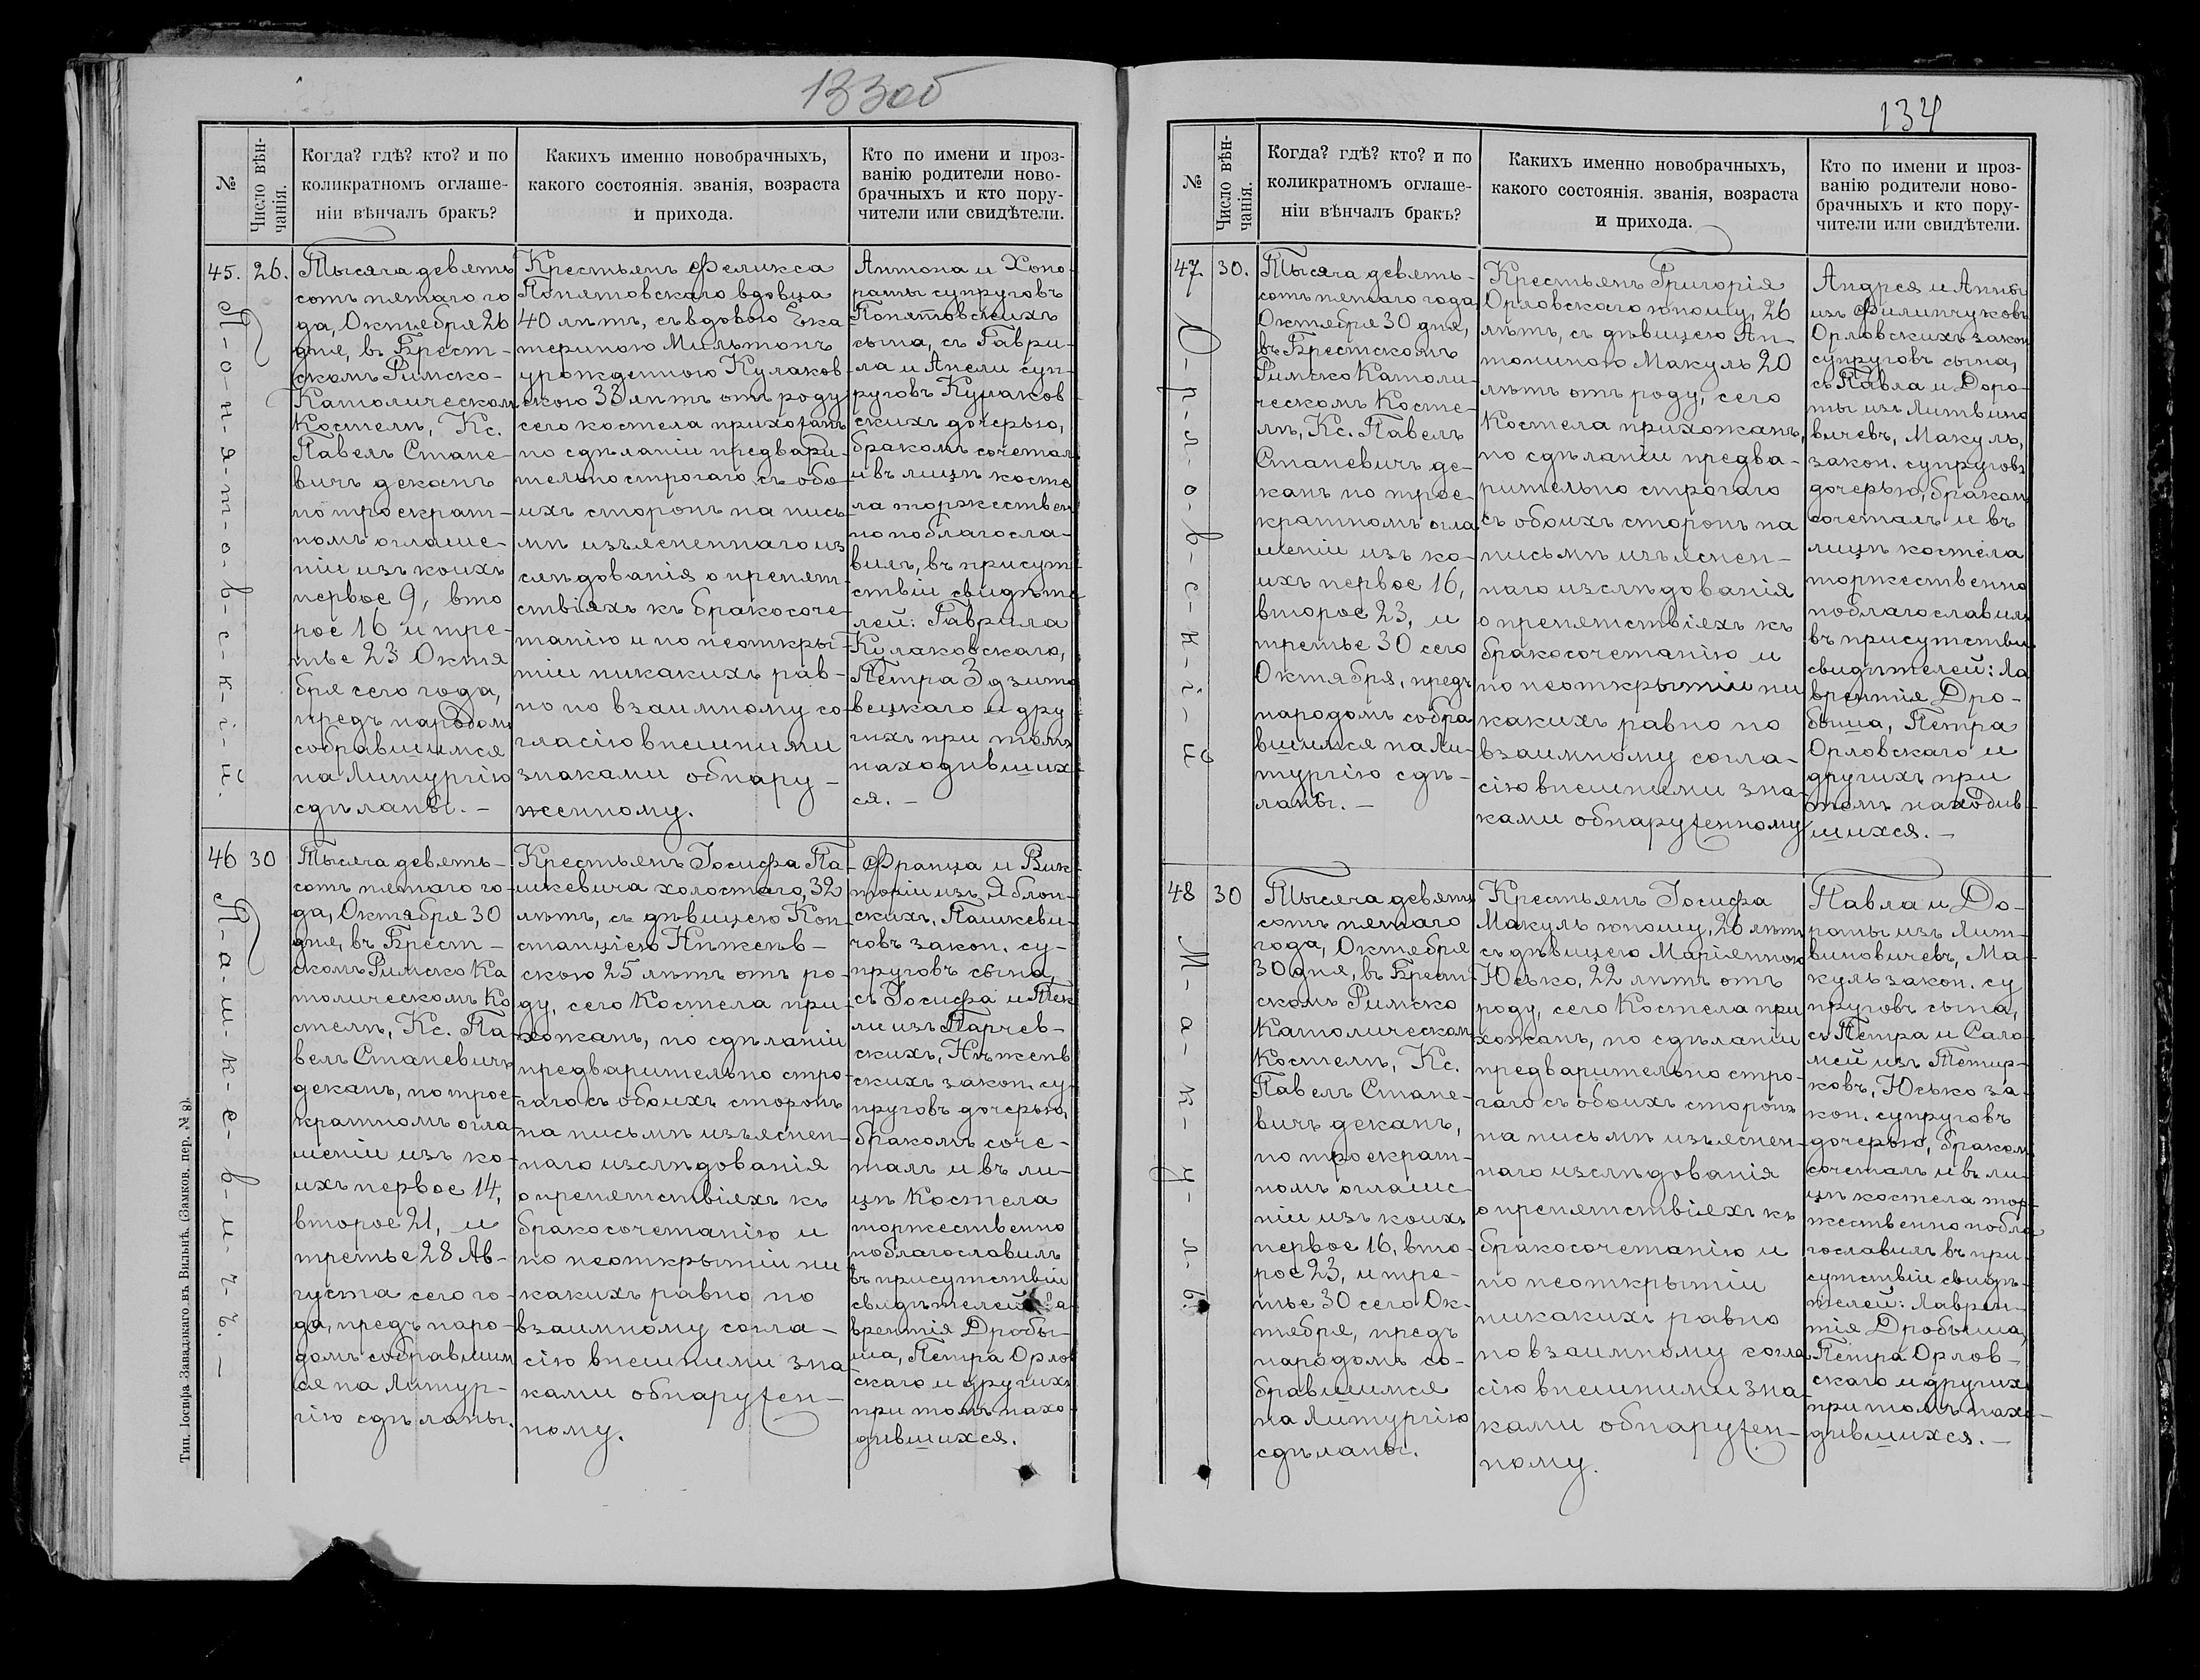 133об
№
Число вѣн-
чанія.
Когда? гдѣ? кто? и по
коликратномъ оглаше-
ніи вѣнчалъ бракъ?
Какихъ именно новобрачныхъ,
какого состоянія. званія, возраста
и прихода.
Кто по имени и проз-
ванію родители ново-
брачныхъ и кто пору-
чители или свидѣтели.
45.
26.
П-о-н-я-т-о-в-с-к-і-й.
Тысяча девять
сотъ пятаго го
да, Октября 26
дня, въ Брест-
скомъ Римско-
Католическом
Костелѣ, Кс.
Павелъ Стане-
вичъ деканъ
по троекрат-
номъ оглаше-
ніи изъ коихъ
первое 9, вто
рое 16 и тре-
тье 23 Октя
бря сего года,
предъ народомъ
собравшимся
на Литургію
сдѣланы. —
Крестьянъ Феликса
Понятовскаго вдовца
40 лѣтъ, съ вдовою Ека
териною Мильтонъ
урожденною Кулаков
скою 33 лѣтъ отъ роду
сего костела прихожанъ
по сдѣланіи предвари-
тельно строгаго съ обо
ихъ сторонъ на пись
мѣ изъясненнаго из
слѣдованія о препят-
ствіяхъ къ бракосоче-
танію и по неоткры-
тіи никакихъ рав-
но по взаимному со-
гласію внешними
знаками обнару-
женному.
Антона и Хоно-
раты супруговъ
Понятовскихъ
сына, съ Гаври-
ла и Анели суп-
руговъ Кулаков
скихъ дочерью,
бракомъ сочетал
и въ лицѣ косте
ла торжествен
но поблагосла-
вилъ, въ присут
ствіи свидѣте
лей: Гаврила
Кулаковскаго,
Петра Здзито
вецкаго и дру
гихъ при томъ
находивших
ся. —
46
30
П-а-ш-к-е-в-и-ч-ъ. —
Тысяча девять-
сотъ пятаго го-
да, Октября 30
дня, въ Брест-
скомъ Римско Ка
толическомъ Ко
стелѣ, Кс. Па-
велъ Станевичъ
деканъ, по трое-
кратномъ огла-
шеніи изъ ко-
ихъ первое 14,
второе 21, и
третье 28 Ав-
густа сего го-
да, предъ наро-
домъ собравшим
ся на Литур-
гію сдѣланы.
Крестьянъ Іосифа Па-
шкевича холостаго, 32
лѣтъ, съ дѣвицею Кон-
станціею Нѣженѣ-
скою 25 лѣтъ отъ ро-
ду, сего Костела при-
хожанъ, по сдѣланіи
предварительно стро-
гаго съ обоихъ сторонъ
на письмѣ изъяснен-
наго изслѣдованія
о препятствіяхъ къ
бракосочетанію и
по неоткрытіи ни
какихъ равно по
взаимному согла-
сію внешними зна
ками обнаружен-
ному.
Франца и Вик
торіи изъ Яблон-
скихъ, Пашкеви-
човъ закон. су-
пруговъ сына,
съ Іосифа и Тек
ли изъ Парчев-
скихъ, Нѣженѣ
скихъ закон. су
пруговъ дочерью,
бракомъ соче-
талъ и въ ли-
цѣ Костела
торжественно
поблагославилъ
въ присутствіи
свидѣтелей: Ла
врентія Дробы-
ша, Петра Орлов
скаго и другихъ
при томъ нахо
дившихся.
Тип. Іосифа Завадзкаго въ Вильнѣ, (Замков. пер. № 8).
134
№
Число вѣн-
чанія.
Когда? гдѣ? кто? и по
коликратномъ оглаше-
ніи вѣнчалъ бракъ?
Какихъ именно новобрачныхъ,
какого состоянія. званія, возраста
и прихода.
Кто по имени и проз-
ванію родители ново-
брачныхъ и кто пору-
чители или свидѣтели.
47
30.
О-р-л-о-в-с-к-і-й
Тысяча девять-
сотъ пятаго года
Октября 30 дня,
въ Брестскомъ
Римско Католи-
ческомъ Косте-
лѣ, Кс. Павелъ
Станевичъ де-
канъ по трое-
кратномъ огла
шеніи изъ ко-
ихъ первое 16,
второе 23, и
третье 30 сего
Октября, предъ
народомъ собра
вшимся на Ли-
тургію сдѣ-
ланы. —
Крестьянъ Григорія
Орловскаго юношу, 26
лѣтъ, съ дѣвицею Ан-
тониною Макуль 20
лѣтъ отъ роду, сего
Костела прихожанъ,
по сдѣланіи предва-
рительно строгаго
съ обоихъ сторонъ на
письмѣ изъяснен-
наго изслѣдованія
о препятствіяхъ къ
бракосочетанію и
по неоткрытіи ни
какихъ равно по
взаимному согла-
сію внешними зна-
ками обнаруженному
Андрея и Анны
изъ Филипчуковъ
Орловскихъ закон
супруговъ сына,
съ Павла и Доро-
ты изъ Литвино
вичевъ, Макуль,
закон. супруговъ
дочерью, браком
сочеталъ и въ
лицѣ костела
торжественно
поблагославилъ
въ присутствіи
свидѣтелей: Ла
врентія Дро-
быша, Петра
Орловскаго и
другихъ при
томъ находив-
шихся. —
48
30
М-а-к-у-л-ь.
Тысяча девять
сотъ пятаго
года, Октября
30 дня, въ Брест-
скомъ Римско
Католическом
Костелѣ, Кс.
Павелъ Стане-
вичъ деканъ,
по троекрат-
номъ оглаше-
ніи изъ коихъ
первое 16, вто-
рое 23, и тре-
тье 30 сего Ок-
тября, предъ
народомъ со-
бравшимся
на Литургію
сдѣланы.
Крестьянъ Іосифа
Макуль юношу, 26 лѣтъ
съ дѣвицею Маріянною
Юсько, 22 лѣтъ отъ
роду, сего Костела при
хожанъ, по сдѣланіи
предварительно стро-
гаго съ обоихъ сторонъ
на письмѣ изъяснен-
наго изслѣдованія
о препятствіяхъ къ
бракосочетанію и
по неоткрытіи
никакихъ равно
по взаимному согла
сію внешними зна-
ками обнаружен-
ному.
Павла и До-
роты изъ Лит-
виновичевъ, Ма-
куль закон. су
пруговъ сына,
съ Петра и Сало
меи изъ Петир-
ковъ, Юсько за-
кон. супруговъ
дочерью, браком
сочеталъ и въ ли-
цѣ костела тор-
жественно побла
гославилъ въ при-
сутствіи свидѣ-
телей: Лаврен-
тія Дробыша,
Петра Орлов-
скаго и других
при томъ нахо-
дившихся. —